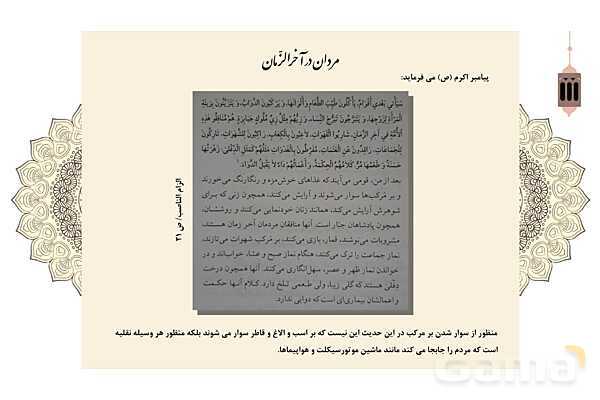 مردان در آخرالزّمان
پیامبر اکرم (ص) می فرماید:
سَيَأْتِي بَعْدِي أَقْوَامٌ، يَأْكُلُونَ طَيِّبَ الطَّعَامِ وَأَلْوَانَهَا، وَيَرْكَبُونَ الدَّوَابَّ، وَ يَتَزَيَّنُونَ بِزِينَةِ
الْمَرْأَةِ لِزَوْجِهَا، وَيَتَبَرَّجُونَ تَبَرُّجَ النِّسَاءِ، وَ زِيُّهُمْ مِثْلُ زِيِّ مُلُوكٍ جَبَابِرَةٍ، هُمْ مُنَافِقُو هٰذِهِ
الْأُمَّةِ فِي آخِرِ الزَّمَانِ، شَارِبُوا الْقَهَوَاتِ، لَاعِبُونَ بِالْكِعَابِ، رَاكِبُونَ لِلشَّهَوَاتِ، تَارِكُونَ
لِلْجَمَاعَاتِ، رَاقِدُونَ عَنِ الْعَتَمَاتِ، مُفَرِّطُونَ بِالْغَدَوَاتِ مَثَلُهُمْ كَمَثَلِ الدِّفْلَى، زَهْرَتُهَا
حَسَنَةٌ وَ طَعْمُهَا مُرٌّ، كَلَامُهُمُ الْحِكْمَةُ، وَ أَعْمَالُهُمْ دَاءٌ لَا يَقْبَلُ الدَّوَاءَ.
بعد از من، قومی می‌آیند که غذاهای خوش‌مزه و رنگارنگ می‌خورند
و بر مَرکب‌ها سوار می‌شوند و آرایش می‌کنند، همچون زنی که برای
شوهرش آرایش می‌کند، همانند زنان خودنمایی می‌کنند و روششان،
همچون پادشاهان جبّار است. آنها منافقان مردمان آخر زمان هستند،
مشروبات می‌نوشند، قمار، بازی می‌کنند، بر مرکب شهوات می‌تازند،
نماز جماعت را ترک می‌کنند، هنگام نماز صبح و عشاء، خواب‌اند و در
خواندن نماز ظهر و عصر، سهل‌انگاری می‌کنند. آنها همچون درخت
دِفْلی هستند که گلی زیبا، ولی طعمی تلخ دارد. کلام آنها حکمت
و اعمالشان بیماری‌ای است که دوایی ندارد.
الزام الناصب/ ص ۳۱
منظور از سوار شدن بر مرکب در این حدیث این نیست که بر اسب و الاغ و قاطر سوار می شوند بلکه منظور هر وسیله نقلیه
است که مردم را جابجا می کند مانند ماشین موتورسیکلت و هواپیماها.
Gama